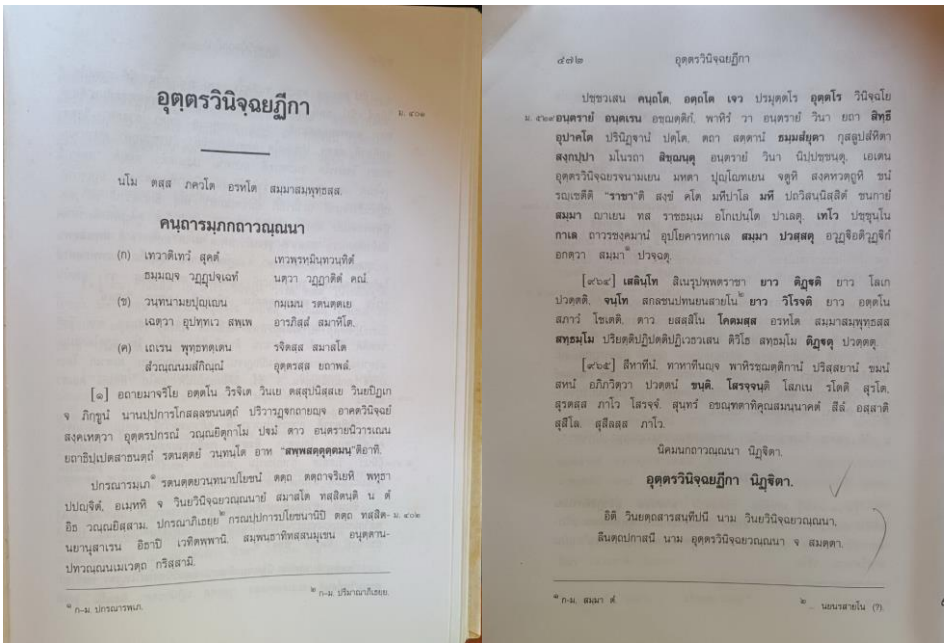 อุตฺตรวินิจฺฉยฏีกา
ม. ๔๐๑
นโม ตสฺส ภควโต อรหโต สมฺมาสมฺพุทฺธสฺส.
คนฺถารมฺภกถาวณฺณนา
(ก) เทวาติเทวํ สุคตํ เทวพฺรหฺมินฺทวนฺทิตํ
ธมฺมญฺจ วฏฺฏุปจฺเฉทํ นตฺวา วฏฺฏาติตํ คณํ.
(ข) วนฺทนามยปุญฺเญน กมฺเมน รตนตฺตเย
เฉตฺวา อุปทฺทเว สพฺเพ อารภิสฺสํ สมาหิโต.
(ค) เถเรน พุทฺธทตฺเตน รจิตสฺส สมาสโต
สํวณฺณนมสํกิณฺณํ อุตฺตรสฺส ยถาพลํ.
[๑] อถายมาจริโย อตฺตโน วิรจิเต วินเย ตสฺสุปนิสฺสเย วินยปิฏเก
จ ภิกฺขูนํ นานปฺปการโกสลฺลชนนตฺถํ ปริวารฏฺฐกถายญฺจ อาคตวินิจฺฉยํ
สงฺคเหตฺวา อุตฺตรปกรณํ วณฺณยิตุกาโม ปฐมํ ตาว อนฺตรายนิวารเณน
ยถาธิปฺเปตสาธนตฺถํ รตนตฺตยํ วนฺทนฺโต อาห "สพฺพสตฺตุตฺตมนฺ"ติอาทิ.
ปกรณารมฺเภ๑ รตนตฺตยวนฺทนาปโยชนํ ตตฺถ ตตฺถาจริเยหิ พหุธา
ปปญฺจิตํ, อเมฺหหิ จ วินยวินิจฺฉยวณฺณนายํ สมาสโต ทสฺสิตนฺติ น ตํ
อิธ วณฺณยิสฺสาม. ปกรณาภิเธยฺย๒ กรณปฺปการปโยชนานิปิ ตตฺถ ทสฺสิต- ม. ๔๐๒
นยานุสาเรน อิธาปิ เวทิตพฺพานิ. สมฺพนฺธาทิทสฺสนมุเขน อนุตฺตาน-
ปทวณฺณนเมเวตฺถ กริสฺสามิ.
๑ ก-ม. ปกรณารพเภ. ๒ ก-ม. ปริมาณาภิเธยฺย.
๕๗๒ อุตฺตรวินิจฺฉยฏีกา
ปชฺชวเสน คนฺถโต, อตฺถโต เจว ปรมุตฺตโร อุตฺตโร วินิจฺฉโย
ม. ๕๒๙ อนฺตรายํ อนฺตเรน อชฺฌตฺติกํ, พาหิรํ วา อนฺตรายํ วินา ยถา สิทฺธึ
อุปาคโต ปรินิฏฺฐานํ ปตฺโต, ตถา สตฺตานํ ธมฺมสํยุตา กุสลูปสํหิตา
สงฺกปฺปา มโนรถา สิชฺฌนฺตุ อนฺตรายํ วินา นิปฺปชฺชนฺตุ, เอเตน
อุตฺตรวินิจฺฉยรจนามเยน มหตา ปุญฺโญทเยน จตูหิ สงฺคหวตฺถูหิ ชนํ
รญฺเชตีติ "ราชา"ติ สงฺขํ คโต มหีปาโล มหึ ปถวิสนฺนิสฺสิตํ ชนกายํ
สมฺมา ญาเยน ทส ราชธมฺเม อโกเปนฺโต ปาเลตุ. เทโว ปชฺชุนฺโน
กาเล ถาวรชงฺคมานํ อุปโยคารหกาเล สมฺมา ปวสฺสตุ อวุฏฺฐิอติวุฏฺฐิกํ
อกตฺวา สมฺมา๑ ปวจฺฉตุ.
[๙๖๔] เสลินฺโท สิเนรุปพฺพตราชา ยาว ติฏฺฐติ ยาว โลเก
ปวตฺตติ, จนฺโท สกลชนปทนยนสายโน๒ ยาว วิโรจติ ยาว อตฺตโน
สภาวํ โชเตติ, ตาว ยสสฺสิโน โคตมสฺส อรหโต สมฺมาสมฺพุทฺธสฺส
สทฺธมฺโม ปริยตฺติปฏิปตฺติปฏิเวธวเสน ติวิโธ สทฺธมฺโม ติฏฺฐตุ ปวตฺตตุ.
[๙๖๕] สีหาทีนํ, ทาหาทีนญฺจ พาหิรชฺฌตฺติกานํ ปริสฺสยานํ ขมนํ
สหนํ อภิภวิตฺวา ปวตฺตนํ ขนฺติ. โสรจฺจนฺติ โสภเน รโตติ สุรโต,
สุรตสฺส ภาโว โสรจฺจํ. สุนฺทรํ อขณฺฑตาทิคุณสมนฺนาคตํ สีลํ อสฺสาติ
สุสีโล, สุสีลสฺส ภาโว.
นิคมนกถาวณฺณนา นิฏฺฐิตา.
อุตฺตรวินิจฺฉยฏีกา นิฏฺฐิตา.
อิติ วินยตฺถสารสนฺทีปนี นาม วินยวินิจฺฉยวณฺณนา,
ลีนตฺถปกาสนี นาม อุตฺตรวินิจฺฉยวณฺณนา จ สมตฺตา.
๑ ก-ม. สมฺมา ตํ. ๒ ... นยนรสายโน (?).